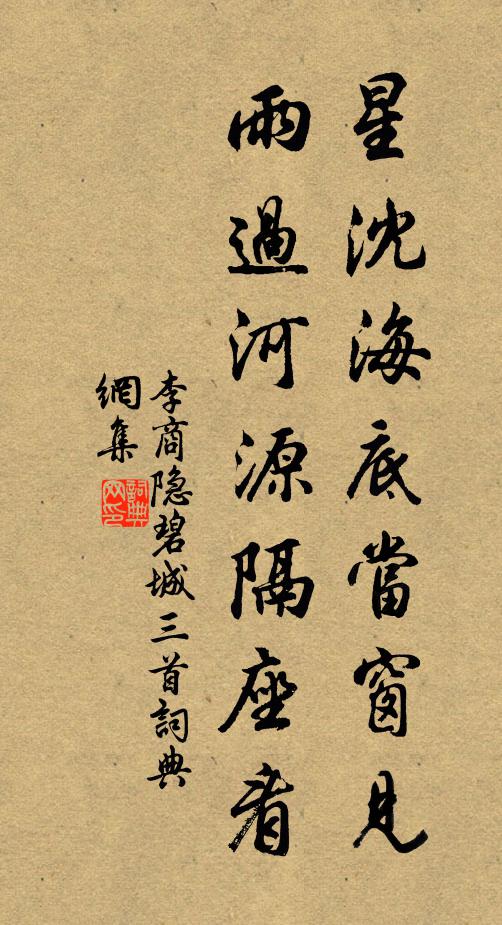 星沈海底當窗見
雨過河源隔座看
李商隐碧城三首詞典
網集
詞典
网印